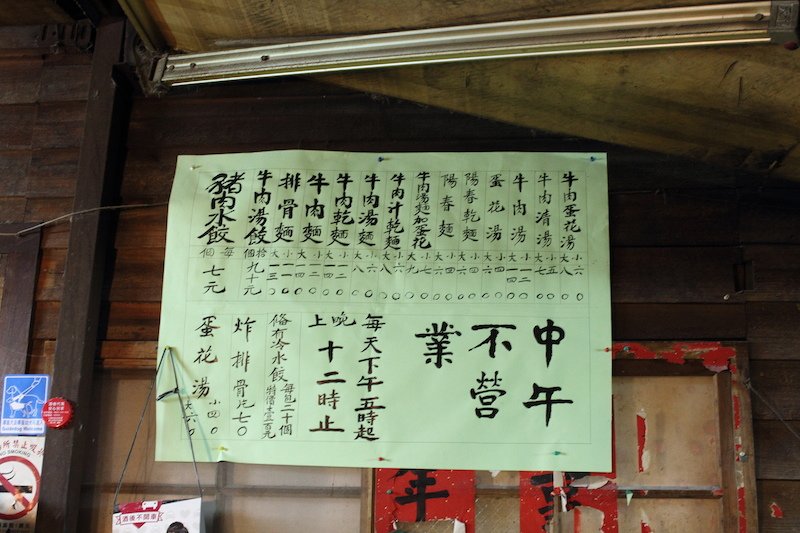 牛肉蛋花湯 小六〇 大八〇
牛肉清湯 小五〇 大七〇
牛肉湯 小一二〇 大一四〇
蛋花湯 小四〇 大六〇
陽春乾麵 小四〇 大六〇
陽春麵 小四〇 大六〇
牛肉湯麵加蛋花 小七〇 大九〇
牛肉汁乾麵 小六〇 大八〇
牛肉湯麵 小六〇 大八〇
牛肉乾麵 小一二〇 大一四〇
牛肉麵 小一二〇 大一四〇
排骨麵 小一一〇 大一三〇
牛肉湯餃 拾個 九十元
豬肉水餃 每個 七元
中午
不營
業
每天下午五時起
晚上十二時止
備有冷水餃 每包二十個 特價壹百元
炸排骨片七〇
蛋花湯 小四〇 大六〇
Guidedog Welcome
所禁止吸
NO SMOKING
酒後不開車
年